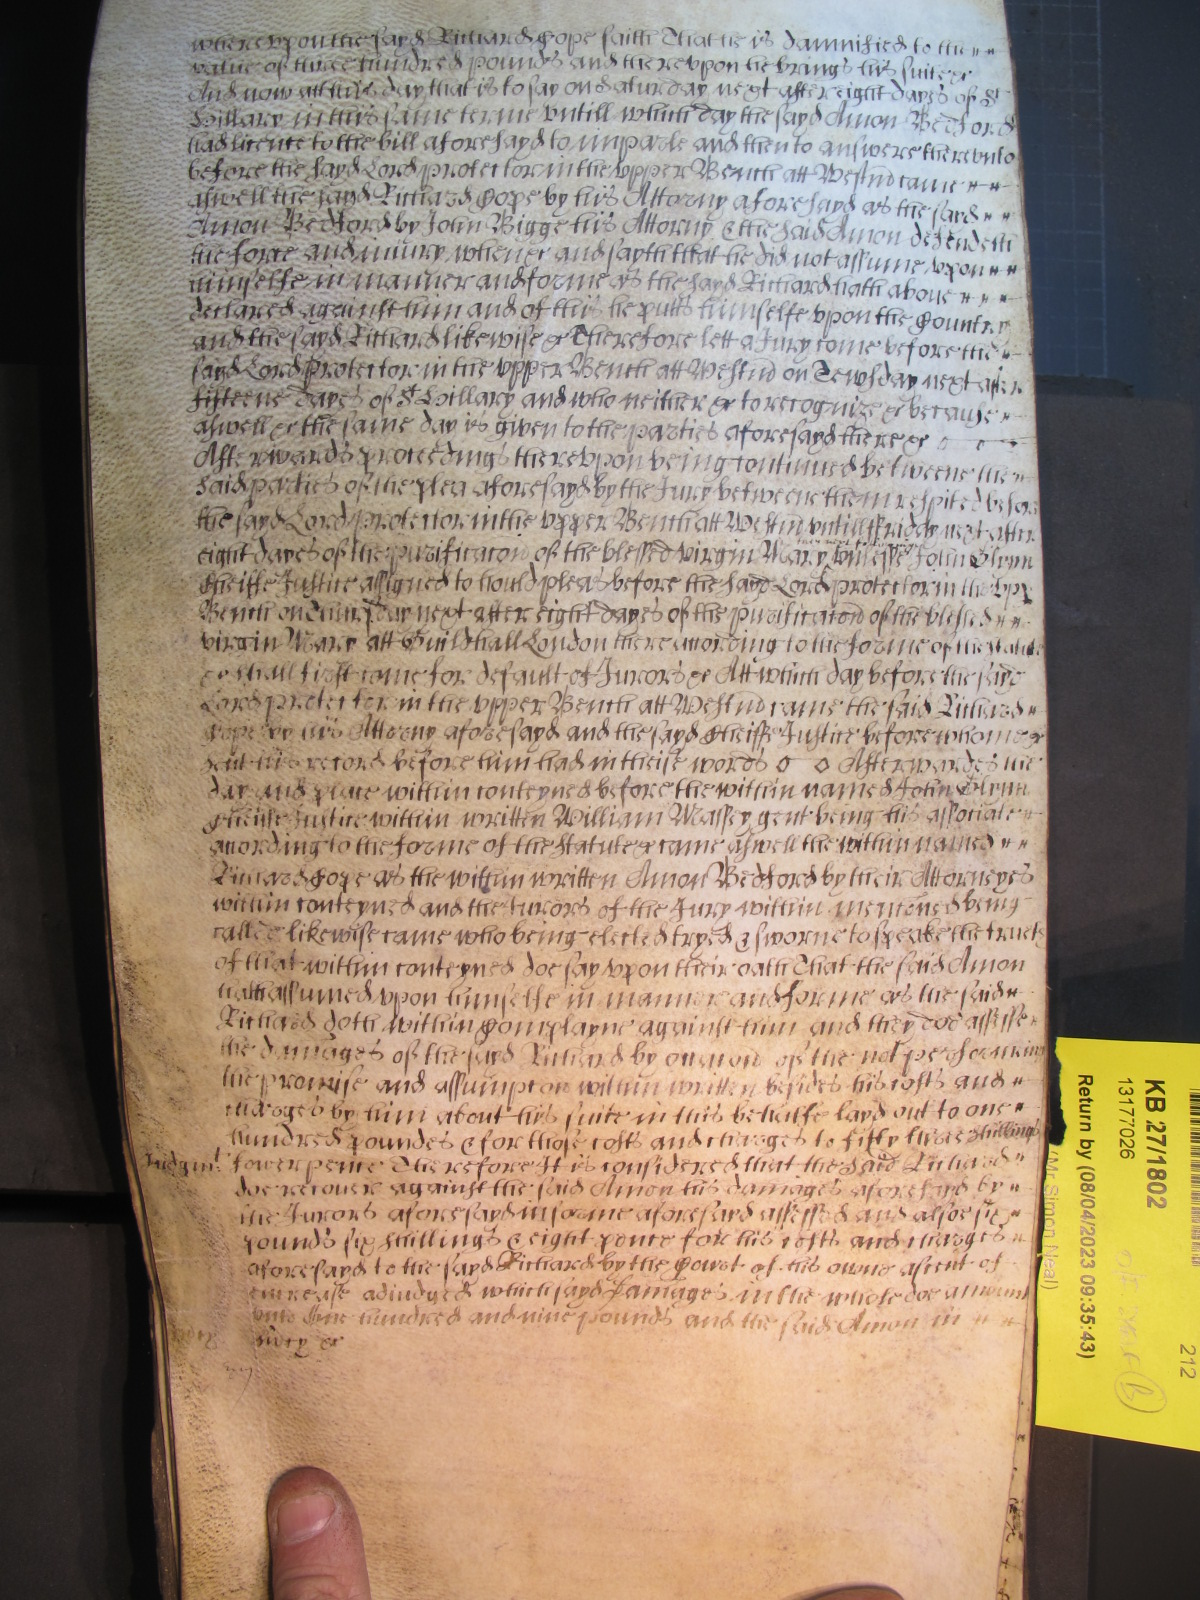 whereupon the sayd Richard Cope saith That he is damnified to the
value of three hundred pounds and thereupon he brings his suite &c
And now att this day that is to say on Saturday next after eight dayes of St
Hillary in this same terme untill which day the sayd Amon Bedford
had licence to the bill aforesayd to imparle and then to answere thereunto
before the sayd Lord protector in the upper Bench att Westm came
aswell the sayd Richard Cope by his Attorny aforesayd as the sayd
Amon Bedford by John Bigge his Attorny & the said Amon defendeth
the force and iniury when &c and sayth that he did not assume upon
himselfe in manner and forme as the sayd Richard hath above
declared against him and of this he putts himselfe upon the Country
and the sayd Richard likewise &c Therefore lett a Jury come before the
sayd Lord protector in the upper Bench att Westm on Tewsday next after
fifteene dayes of St Hillary and who neither &c to recognize &c because
aswell &c the same day is given to the parties aforesayd there &c
Afterwards proceedings thereupon being continued betweene the
said parties of the plea aforesayd by the Jury betweene them respited before
the sayd Lord protector in the upper Bench att Westm untill ffriday next after
eight dayes of the purificacon of the blessed virgin Mary unlesse John Glynn
Cheiffe Justice assigned to hould pleas before the sayd Lord protector in the upper
Bench on Thursday next after eight dayes of the purificacon of the blessed
virgin Mary att Guildhall London there according to the forme of the statute
&c shall first come for default of Jurors &c Att which day before the sayd
Lord protector in the upper Bench att Westm came the said Richard
Cope by his Attorny aforesayd and the sayd Cheiffe Justice before whome &c
sent his record before him had in theise words Afterwardes the
day and place within conteyned before the within named John Glynn
Cheiffe Justice within written William Massey gent being his associate
according to the forme of the statute &c came aswell the within named
Richard Cope as the within written Amon Bedford by their Attorneyes
within conteyned and the Jurors of the Jury within menconed being
called likewise came who being elected tryed & sworne to speake the trueth
of that within conteyned doe say upon their oath That the said Amon
hath assumed upon himselfe in manner and forme as the said
Richard doth within Complayne against him and they doe assesse
the damages of the sayd Richard by occasion of the not performing
the promise and assumpcon within written besides his costs and
charges by him about his suite in this behalfe layd out to one
hundred poundes & for those costs and charges to fifty three shillings
Judgmt fower pence Therefore It is considered that the said Richard
doe recover against the said Amon his damages aforesayd by
the Jurors aforesayd in forme aforesayd assessed and alsoe six
pounds six shillings & eight pence for his costs and charges
aforesayd to the sayd Richard by the Court of his owne assent of
encrease adiudged which sayd damages in the whole doe amount
unto One hundred and nine pounds and the said Amon in
mercy &c
KB 27/1802
13177026
Return by (08/04/2023 09:35:43)
(Mr Simon Neal)
212